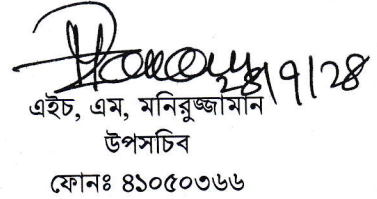 ২৪/৭/২৪
এইচ, এম, মনিরুজ্জামান
উপসচিব
ফোনঃ ৪১০৫০৩৬৬